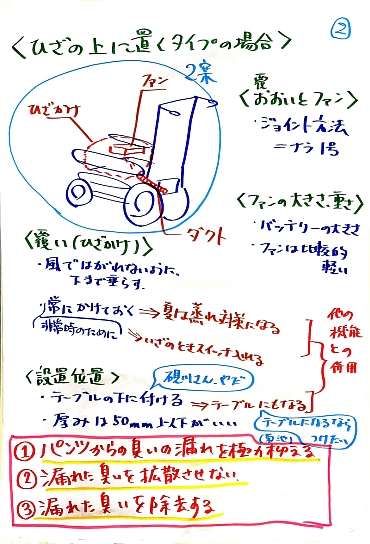 ②
<ひざの上に置くタイプの場合>
2案
ファン
ひざかけ
ダクト
<おおいとファン>
・ジョイント方法
<ファンの大きさ、重さ>
・バッテリーの大きさ
・ファンは比較的
軽い
<覆い(ひざかけ)>
・風ではがれないように、
下まで垂らす.
・常にかけておく⇒夏は蒸れ対策になる
非常時のために⇒いざのときスイッチ入れる
他の
機能
との
併用
<設置位置>
・テーブルの下に付ける⇒テーブルにもなる
・厚みは50mm以下がいい
テーブルになるなら
つけたい
①パンツからの臭いの漏れを極力抑える
②漏れた臭いを拡散させない
③漏れた臭いを除去する